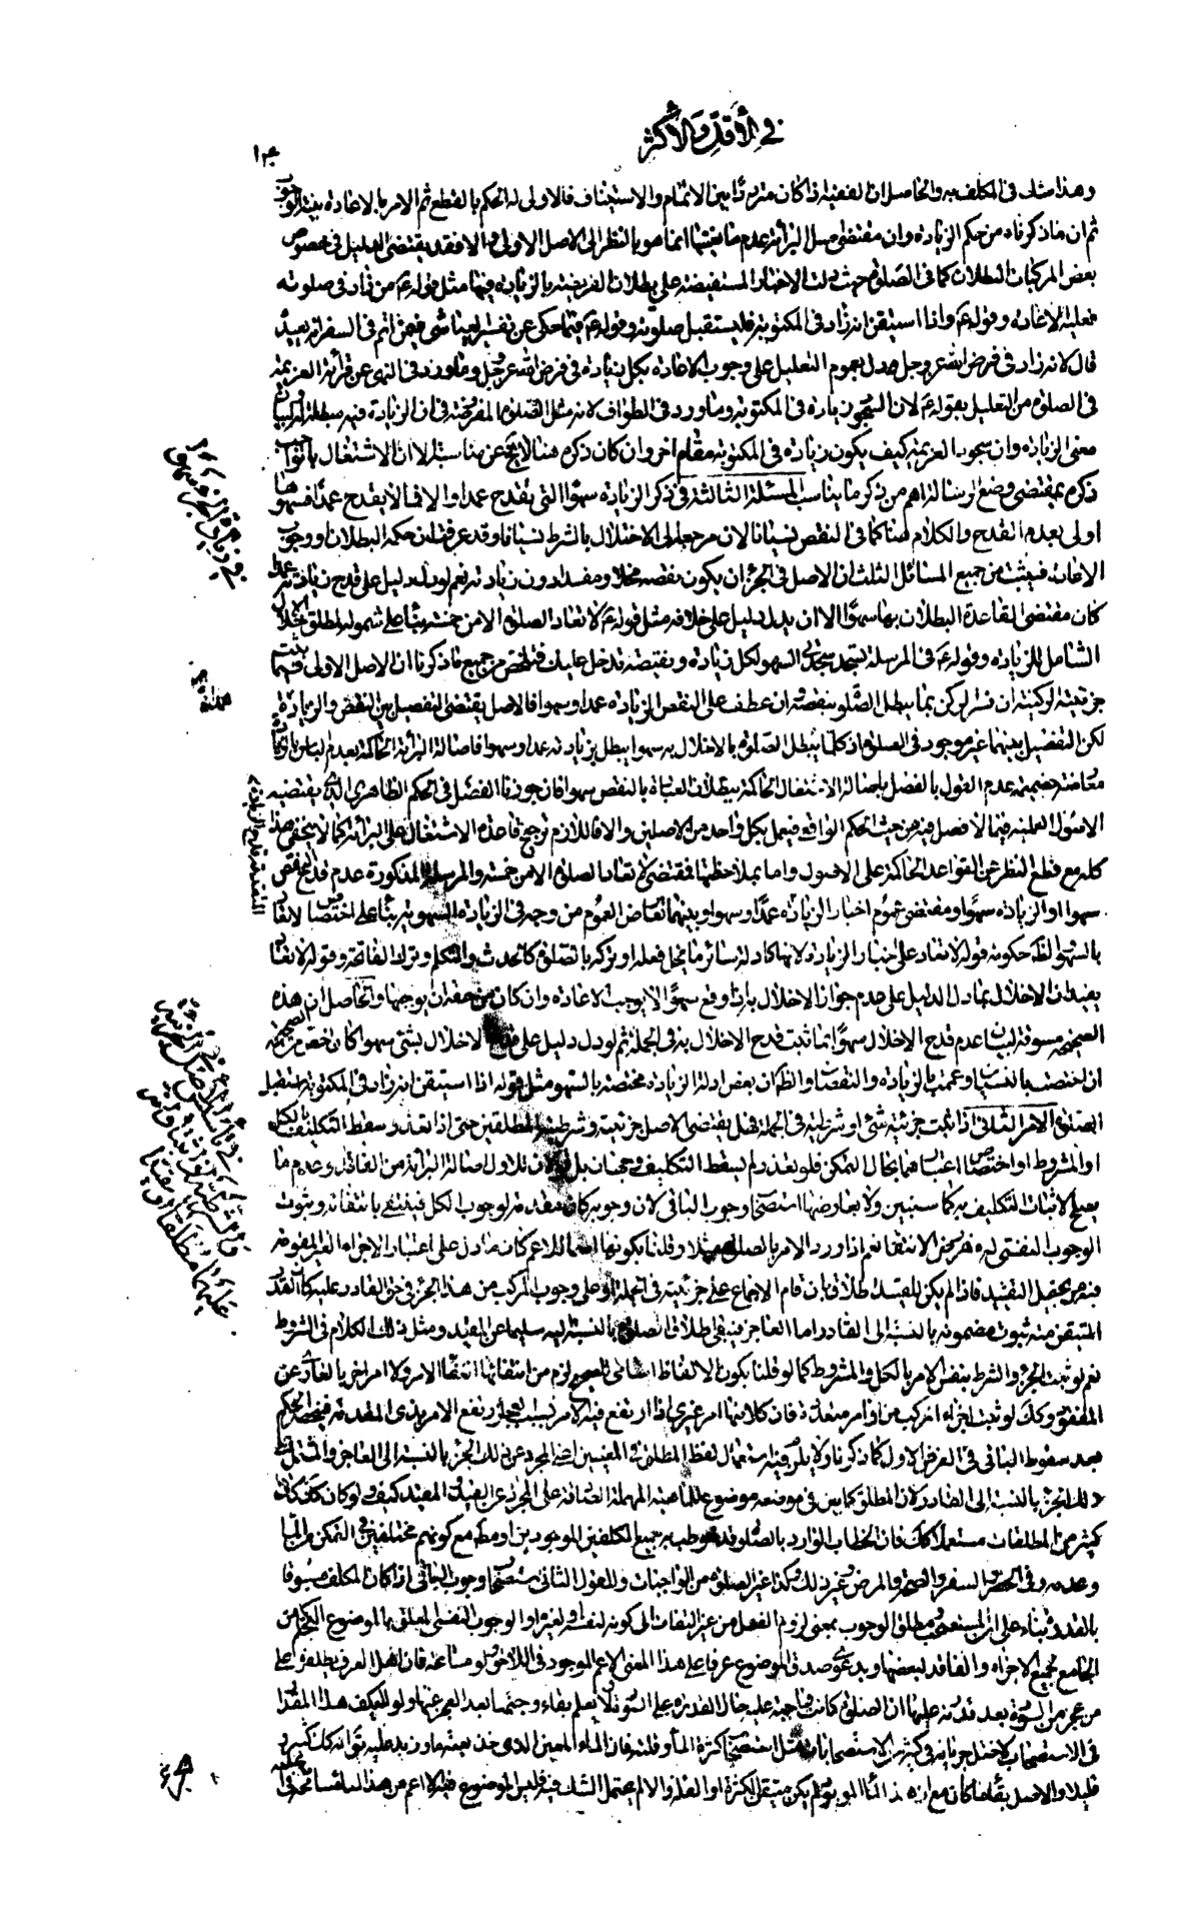 في الأقل والأكثر
وهذا مثله في المكلف به والحاصل ان الفقيه اذا كان مترددا بين الاتمام والاستيناف فالاولى له الحكم بالقطع ثم الامر بالاعادة بنية الوجوب
ثم ان ما ذكرناه من حكم الزيادة وان مقتضى اصل البرائة عدم مانعيتها انما هو بالنظر الى الاصل الاولى والا فقد يقتضى الدليل في خصوص
بعض المركبات البطلان كما في الصلوة حيث دلت الاخبار المستفيضة على بطلان الفريضة بالزيادة فيها مثل قوله ع من زاد في صلوته
فعليه الاعادة وقوله ع واذا استيقن انه زاد في المكتوبة فليستقبل صلوته وقوله ع فيما حكى عن تفسير العياشي فيمن اتم في السفر انه يعيد
قال لانه زاد في فرض الله عز وجل دل بعموم التعليل على وجوب الاعادة بكل زيادة في فرض الله عز وجل وما ورد في النهى عن قرائة العزيمة
في الصلوة من التعليل بقوله ع لان السجود زيادة في المكتوبة وما ورد في الطواف لانه مثل الصلوة المفروضة في ان الزيادة فيه مبطلة
معنى الزيادة وان سجود العزيمة كيف يكون زيادة في المكتوبة مقام اخر وان كان ذكره هنا لا يخ عن مناسبة الا ان الاشتغال بالواجب
ذكره بمقتضى وضع الرسالة اهم من ذكر ما يناسب المسئلة الثالثة في ذكر الزيادة سهوا التي تقدح عمدا والا فما لا يقدح عمدا فسهوها
اولى بعدم القدح والكلام هنا كما في النقص نسيانا لان مرجعه الى الاخلال بالشرط نسيانا وقد عرفت ان حكمه البطلان ووجوب
الاعادة فيثبت من جميع المسائل الثلث ان الاصل في الجزء ان يكون نقصه مخلا ومفسدا دون زيادته نعم لو دل دليل على قدح زيادته عمدا
كان مقتضى القاعدة البطلان بها سهوا الا ان يدل دليل على خلافه مثل قوله ع لا تعاد الصلوة الا من خمسة بناء على شموله لمطلق الاخلال
الشامل للزيادة وقوله ع في المرسلة تسجد سجدتي السهو لكل زيادة ونقيصة تدخل عليك فتلخص من جميع ما ذكرنا ان الاصل الاولى فيما ثبت
جزئيته الركنية ان فسر الركن بما يبطل الصلوة بنقصه وان عطف على النقص الزيادة عمدا وسهوا فالاصل يقتضى التفصيل بين النقص والزيادة
لكن التفصيل بينهما غير موجود في الصلوة اذ كلما يبطل الصلوة بالاخلال به سهوا يبطل بزيادته عمدا وسهوا فاصالة البرائة الحاكمة بعدم الباس بالزيادة
معارضة بضميمة عدم القول بالفصل باصالة الاشتغال الحاكمة ببطلان العبادة بالنقص سهوا فان جوزنا الفصل في الحكم الظاهرى الذي يقتضيه
الاصول العملية فيما لا فصل فيه من حيث الحكم الواقعي فيعمل بكل واحد من الاصلين والا فاللازم ترجيح قاعدة الاشتغال على البرائة كما لا يخفى هذا
كله مع قطع النظر عن القواعد الحاكمة على الاصول واما بملاحظتها فمقتضى لا تعاد الصلوة الا من خمسة والمرسلة المذكورة عدم قدح النقص
سهوا او الزيادة سهوا ومقتضى عموم اخبار الزيادة عمدا وسهوا وبينهما تعارض العموم من وجه في الزيادة السهوية بناء على اختصاص لا تعاد
بالسهو والظاهر حكومة قوله لا تعاد على اخبار الزيادة لانها كادلة سائر ما يخل فعله او تركه بالصلوة كالحدث والتكلم وترك الفاتحة وقوله لا تعاد
يفيد ان الاخلال بما دل الدليل على عدم جواز الاخلال به اذا وقع سهوا لا يوجب الاعادة وان كان من حقه ان يوجبها والحاصل ان هذه
الصحيحة مسوقة لبيان عدم قدح الاخلال سهوا بما ثبت قدح الاخلال به في الجملة ثم لو دل دليل على قدح الاخلال بشئ سهوا كان اخص من الصحيحة
ان اختصت بالنسيان وعممت بالزيادة والنقصان والظاهر ان بعض ادلة الزيادة مختصة بالسهو مثل قوله اذا استيقن انه زاد في المكتوبة استقبل
الصلوة الامر الثاني اذا ثبت جزئية شئ او شرطيته في الجملة فهل يقتضى الاصل جزئيته وشرطيته المطلقتين حتى اذا تعذر سقط التكليف بالكل
او المشروط او اختصاص اعتبارهما بحال التمكن فلو تعذر لم يسقط التكليف وجهان بل قولان للاول اصالة البرائة من الفاقد وعدم ما
يصلح لاثبات التكليف به كما سنبين ولا يعارضها استصحاب وجوب الباقي لان وجوبه كان مقدمة لوجوب الكل فينتفى بانتفائه وثبوت
الوجوب النفسي له مفروض الانتفاء نعم اذا ورد الامر بالصلوة مثلا وقلنا بكونها اسما للاعم كان ما دل على اعتبار الاجزاء الغير المقومة
فيه من قبيل التقييد فاذا لم يكن للمقيد اطلاق بان قام الاجماع على جزئيته في الجملة او على وجوب المركب من هذا الجزء في حق القادر عليه كان القدر
المتيقن منه ثبوت مضمونه بالنسبة الى القادر اما العاجز فيبقى اطلاق الصلوة بالنسبة اليه سليما عن المقيد ومثل ذلك الكلام في الشروط
نعم لو ثبت الجزء والشرط بنفس الامر بالكل والمشروط كما لو قلنا بكون الالفاظ اسامى للصحيح لزم من انتفائهما انتفاء الامر ولا امر اخر بالعارى عن
المفقود وكذلك لو ثبت اجزاء المركب من اوامر متعددة فان كلا منها امر غيرى اذا ارتفع فيه الامر بسبب العجز ارتفع الامر بذى المقدمة فينحصر الحكم
بعدم سقوط الباقي في الفرض الاول كما ذكرنا ولا يلزم فيه استعمال لفظ المطلق في المعنيين اعني المجرد عن ذلك الجزء بالنسبة الى العاجز والمشتمل على
ذلك الجزء بالنسبة الى القادر لان المطلق كما بين في موضعه موضوع للماهية المهملة الصادقة على المجرد عن القيد والمقيد كيف ولو كان كذلك كان
كثير من المطلقات مستعملا كك فان الخطاب الوارد بالصلوة قد خوطب به جميع المكلفين الموجودين او مطلقا مع كونهم مختلفين في التمكن من الماء
وعدمه وفي الحضر والسفر والصحة والمرض وغير ذلك وكذا غير الصلوة من الواجبات وللقول الثاني استصحاب وجوب الباقي اذا كان المكلف مسبوقا
بالقدرة بناء على ان المستصحب هو مطلق الوجوب بمعنى لزوم الفعل من غير التفات الى كونه لنفسه او لغيره او الوجوب النفسي المتعلق بالموضوع الاعم من
الجامع لجميع الاجزاء والفاقد لبعضها ودعوى صدق الموضوع عرفا على هذا المعنى الاعم الموجود في اللاحق ولو مسامحة فان اهل العرف يطلقون على
من عجز عن السورة بعد قدرته عليها ان الصلوة كانت واجبة عليه حال القدرة على السورة ولا يعلم بقاء وجوبها بعد العجز عنها ولو لم يكف هذا المقدار
في الاستصحاب لاختل جريانه في كثير من الاستصحابات مثل استصحاب كثرة الماء وقلته فان الماء المعين الذي اخذ بعضه او زيد عليه يقال انه كان كثيرا او
قليلا والاصل بقاء ما كان مع ان هذا الماء الموجود لم يكن متيقن الكثرة او القلة والا لم يعقل الشك فيه فليس الموضوع فيه الا اعم من هذا الماء مسامحة في